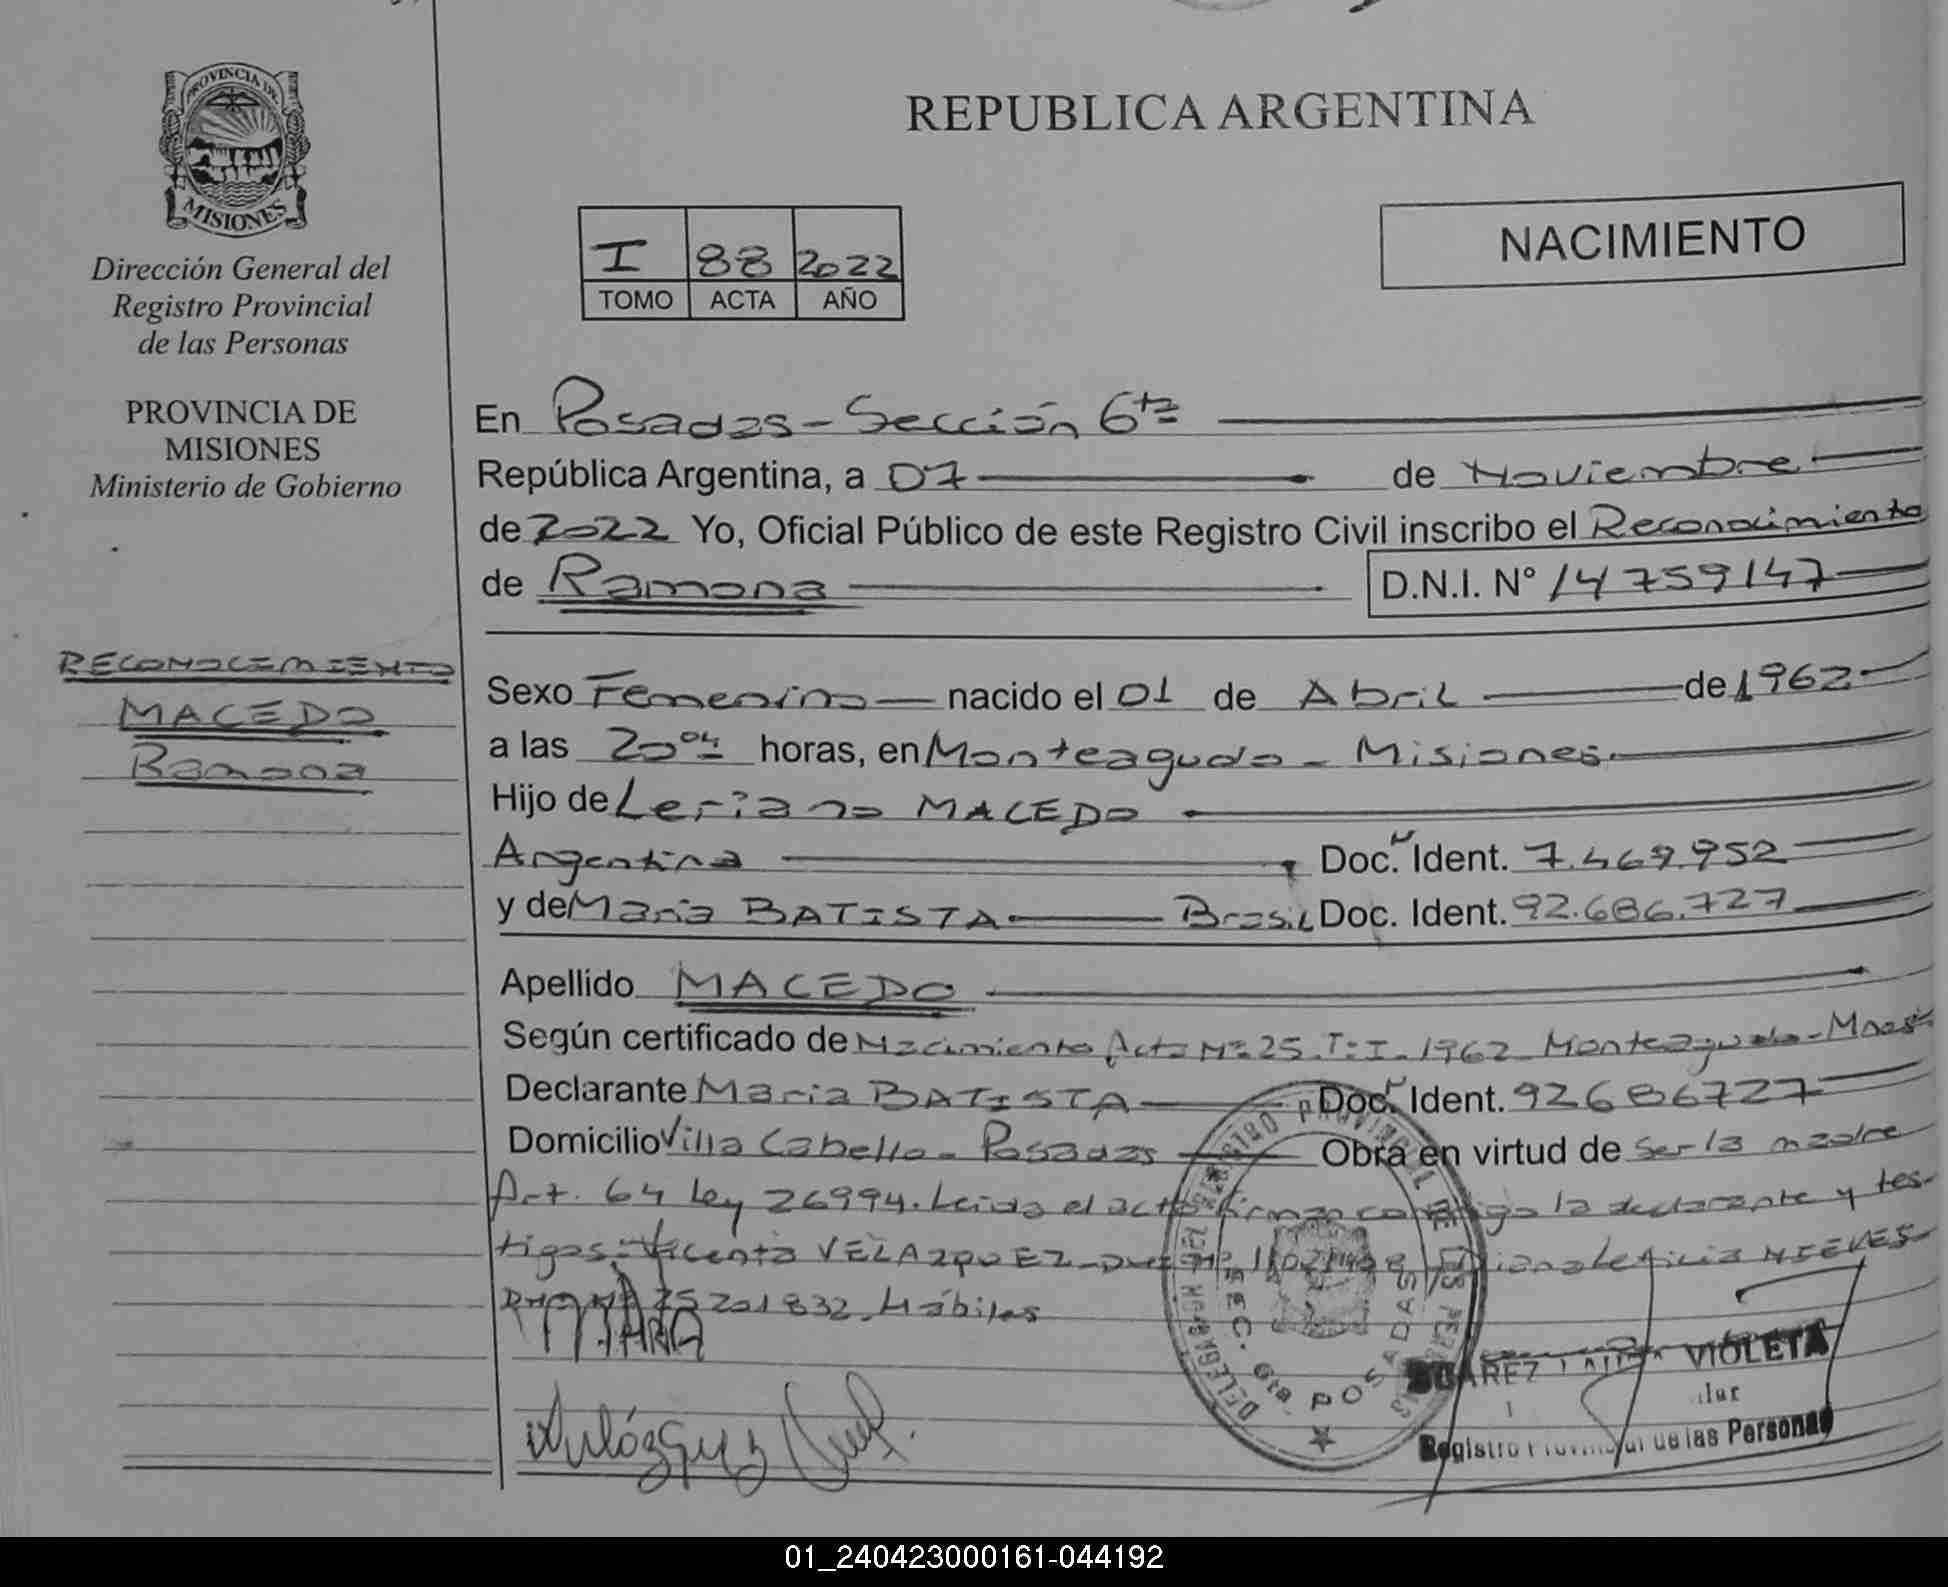 PROVINCIA DE
MISIONES
Dirección General del
Registro Provincial
de las Personas
PROVINCIA DE
MISIONES
Ministerio de Gobierno
RECONOCIMIENTO
MACEDO
Ramona
REPUBLICA ARGENTINA
NACIMIENTO
I 88 2022
TOMO ACTA AÑO
En Posadas - Sección 6ta
República Argentina, a 07 de Noviembre
de 2022 Yo, Oficial Público de este Registro Civil inscribo el Reconocimiento
de Ramona D.N.I. N° 14759147
Sexo Femenino nacido el 01 de Abril de 1962
a las 20 04 horas, en Monteagudo - Misiones
Hijo de Leriano MACEDO
Argentina Doc. Ident. 7.469.952
y de Maria BATISTA Brasil Doc. Ident. 92.686.727
Apellido MACEDO
Según certificado de Nacimiento Acta Nº 25. T:I. 1962 Monteagudo - Mnes
Declarante Maria BATISTA Doc. Ident. 92686727
Domicilio Villa Cabello - Posadas Obra en virtud de ser la madre
Art. 64 Ley 26994. Leida el acta firman conmigo la declarante y tes-
tigos: Vicenta VELAZQUEZ Leticia NIEVES
25201832 Hábiles
MARIA
REGISTRO PROVINCIAL DE LAS PERSONAS
SEC. 6ta POSADAS
SUAREZ VIOLETA
Registro Provincial de las Personas
01_240423000161-044192